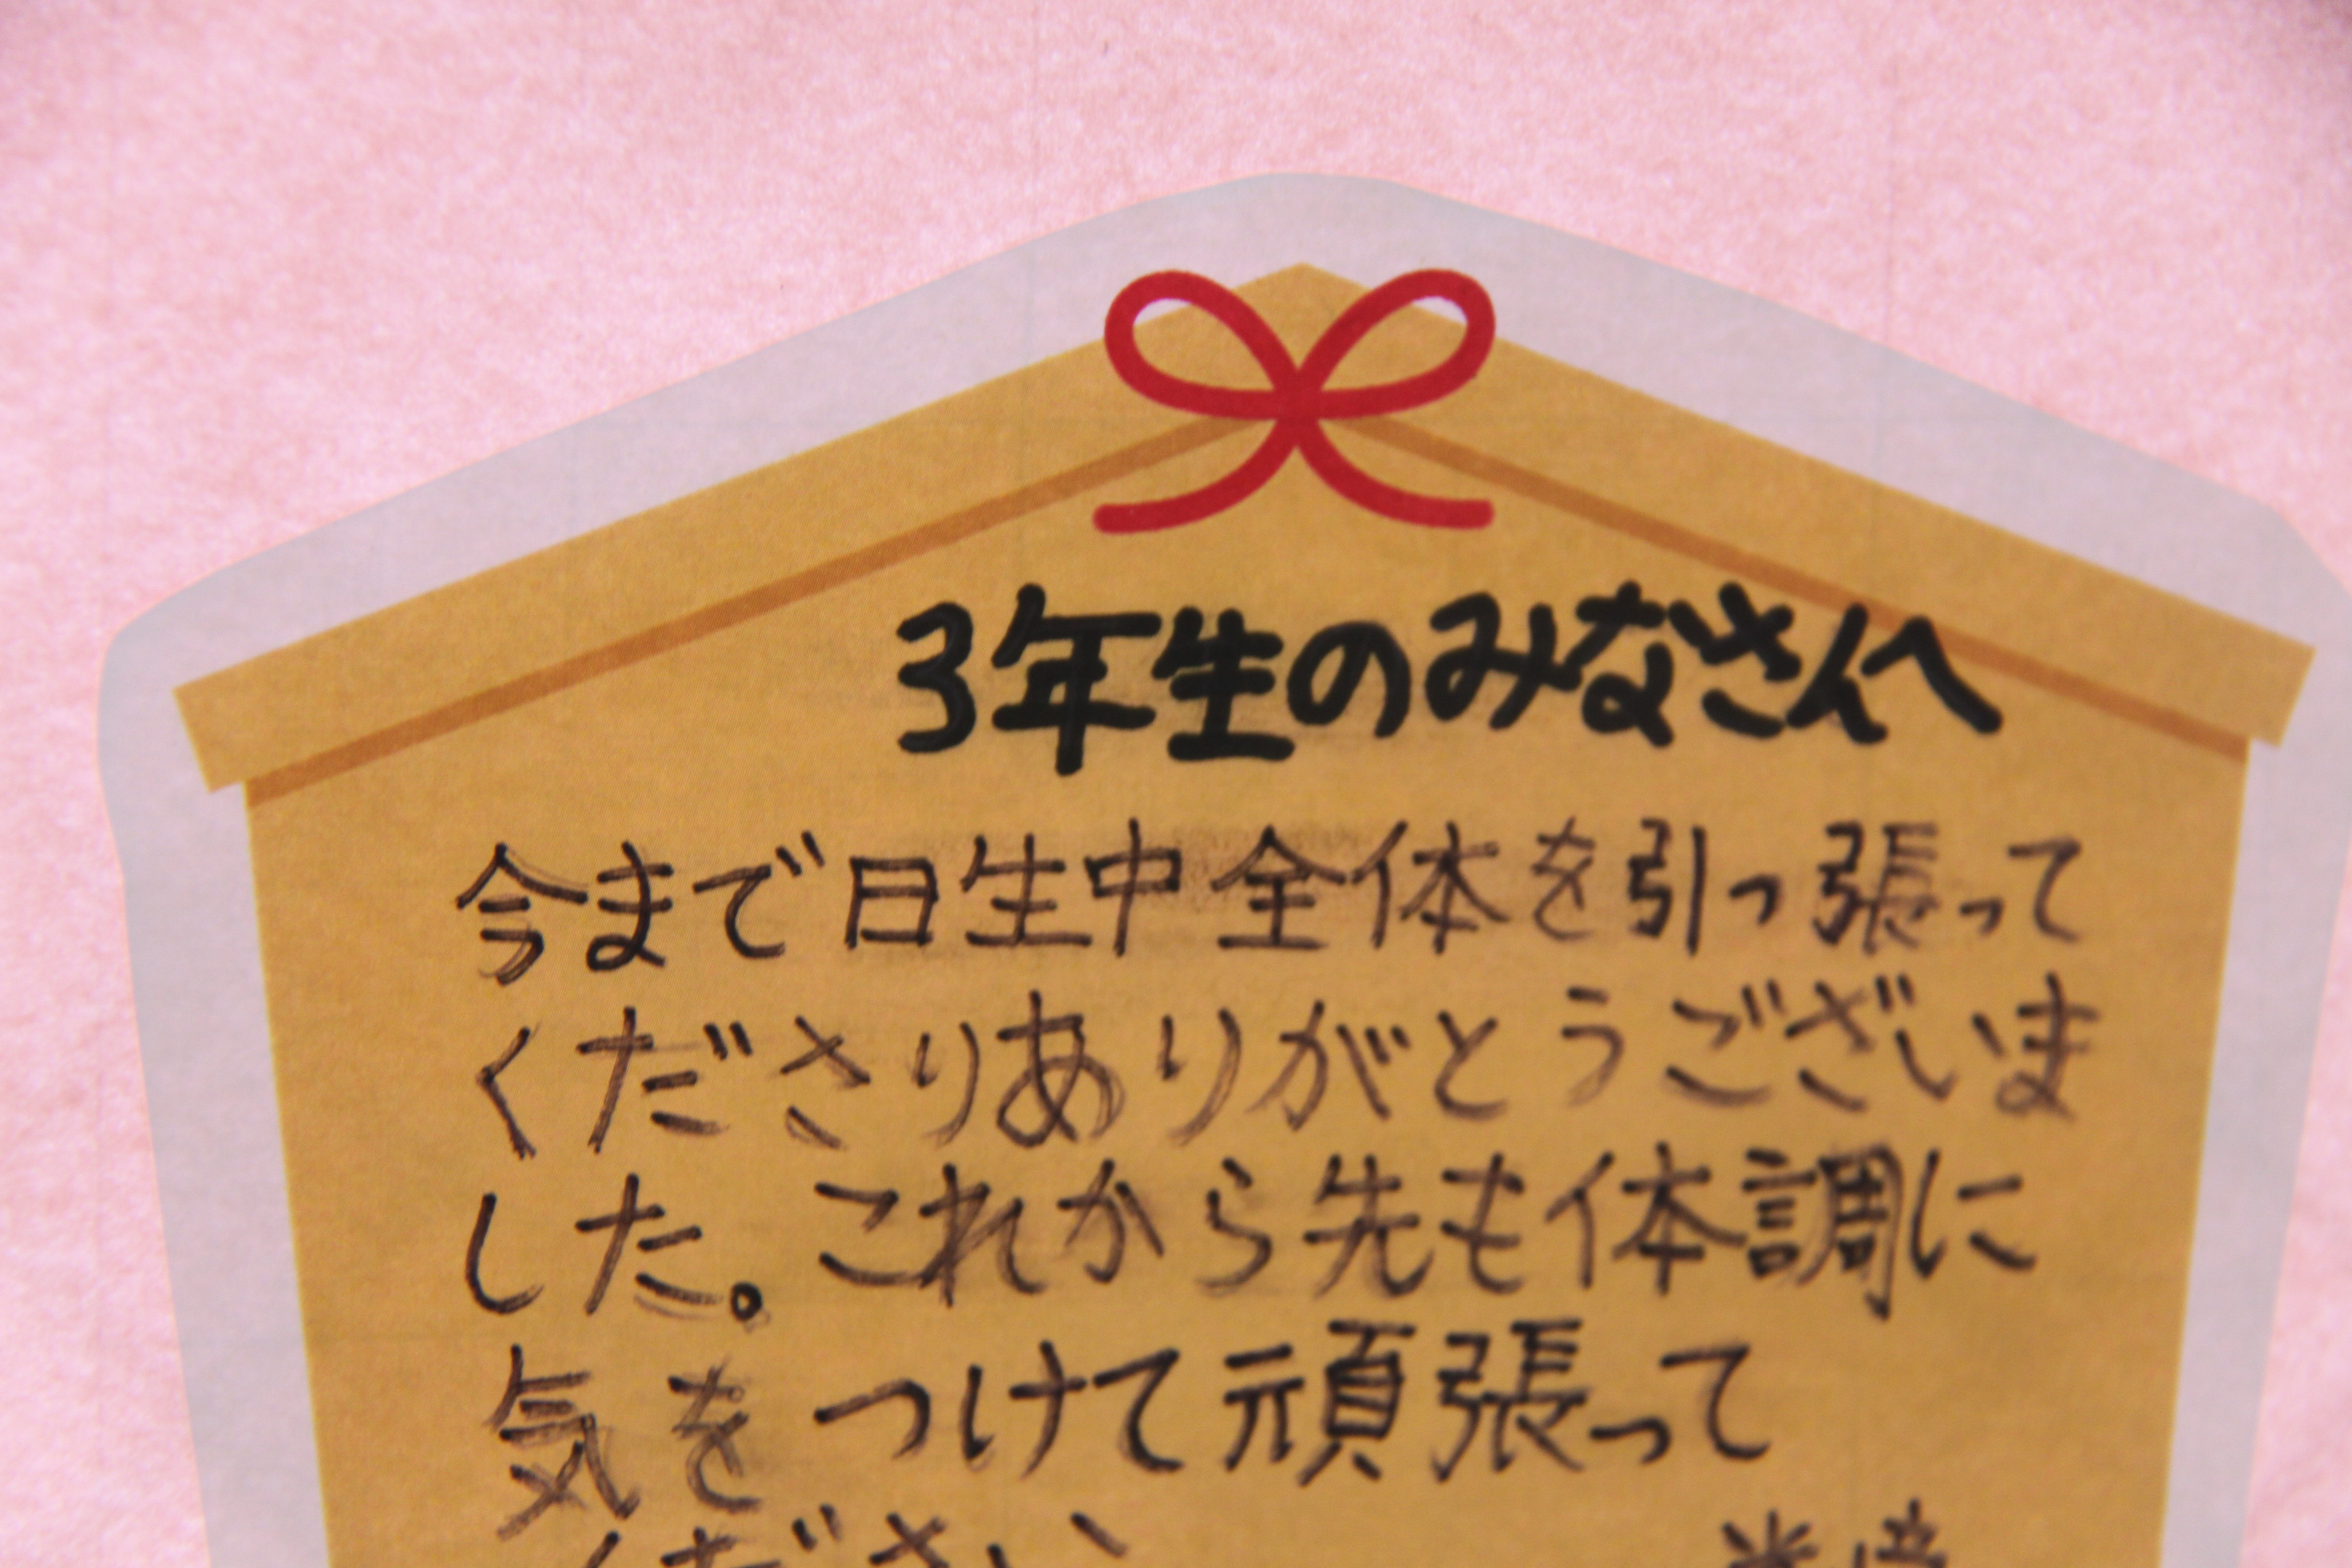 3年生のみなさんへ
今まで日生中全体を引っ張って
くださりありがとうございま
した。これから先も体調に
気をつけて頑張って
ください